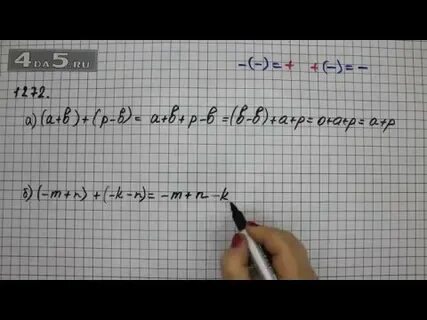 4DA5.RU
-(-)=+ +(-)=-
1272.
а) (a+b)+(p-b)= a+b+p-b =(b-b)+a+p=0+a+p=a+p
б) (-m+n)+(-k-n)= -m+n-k